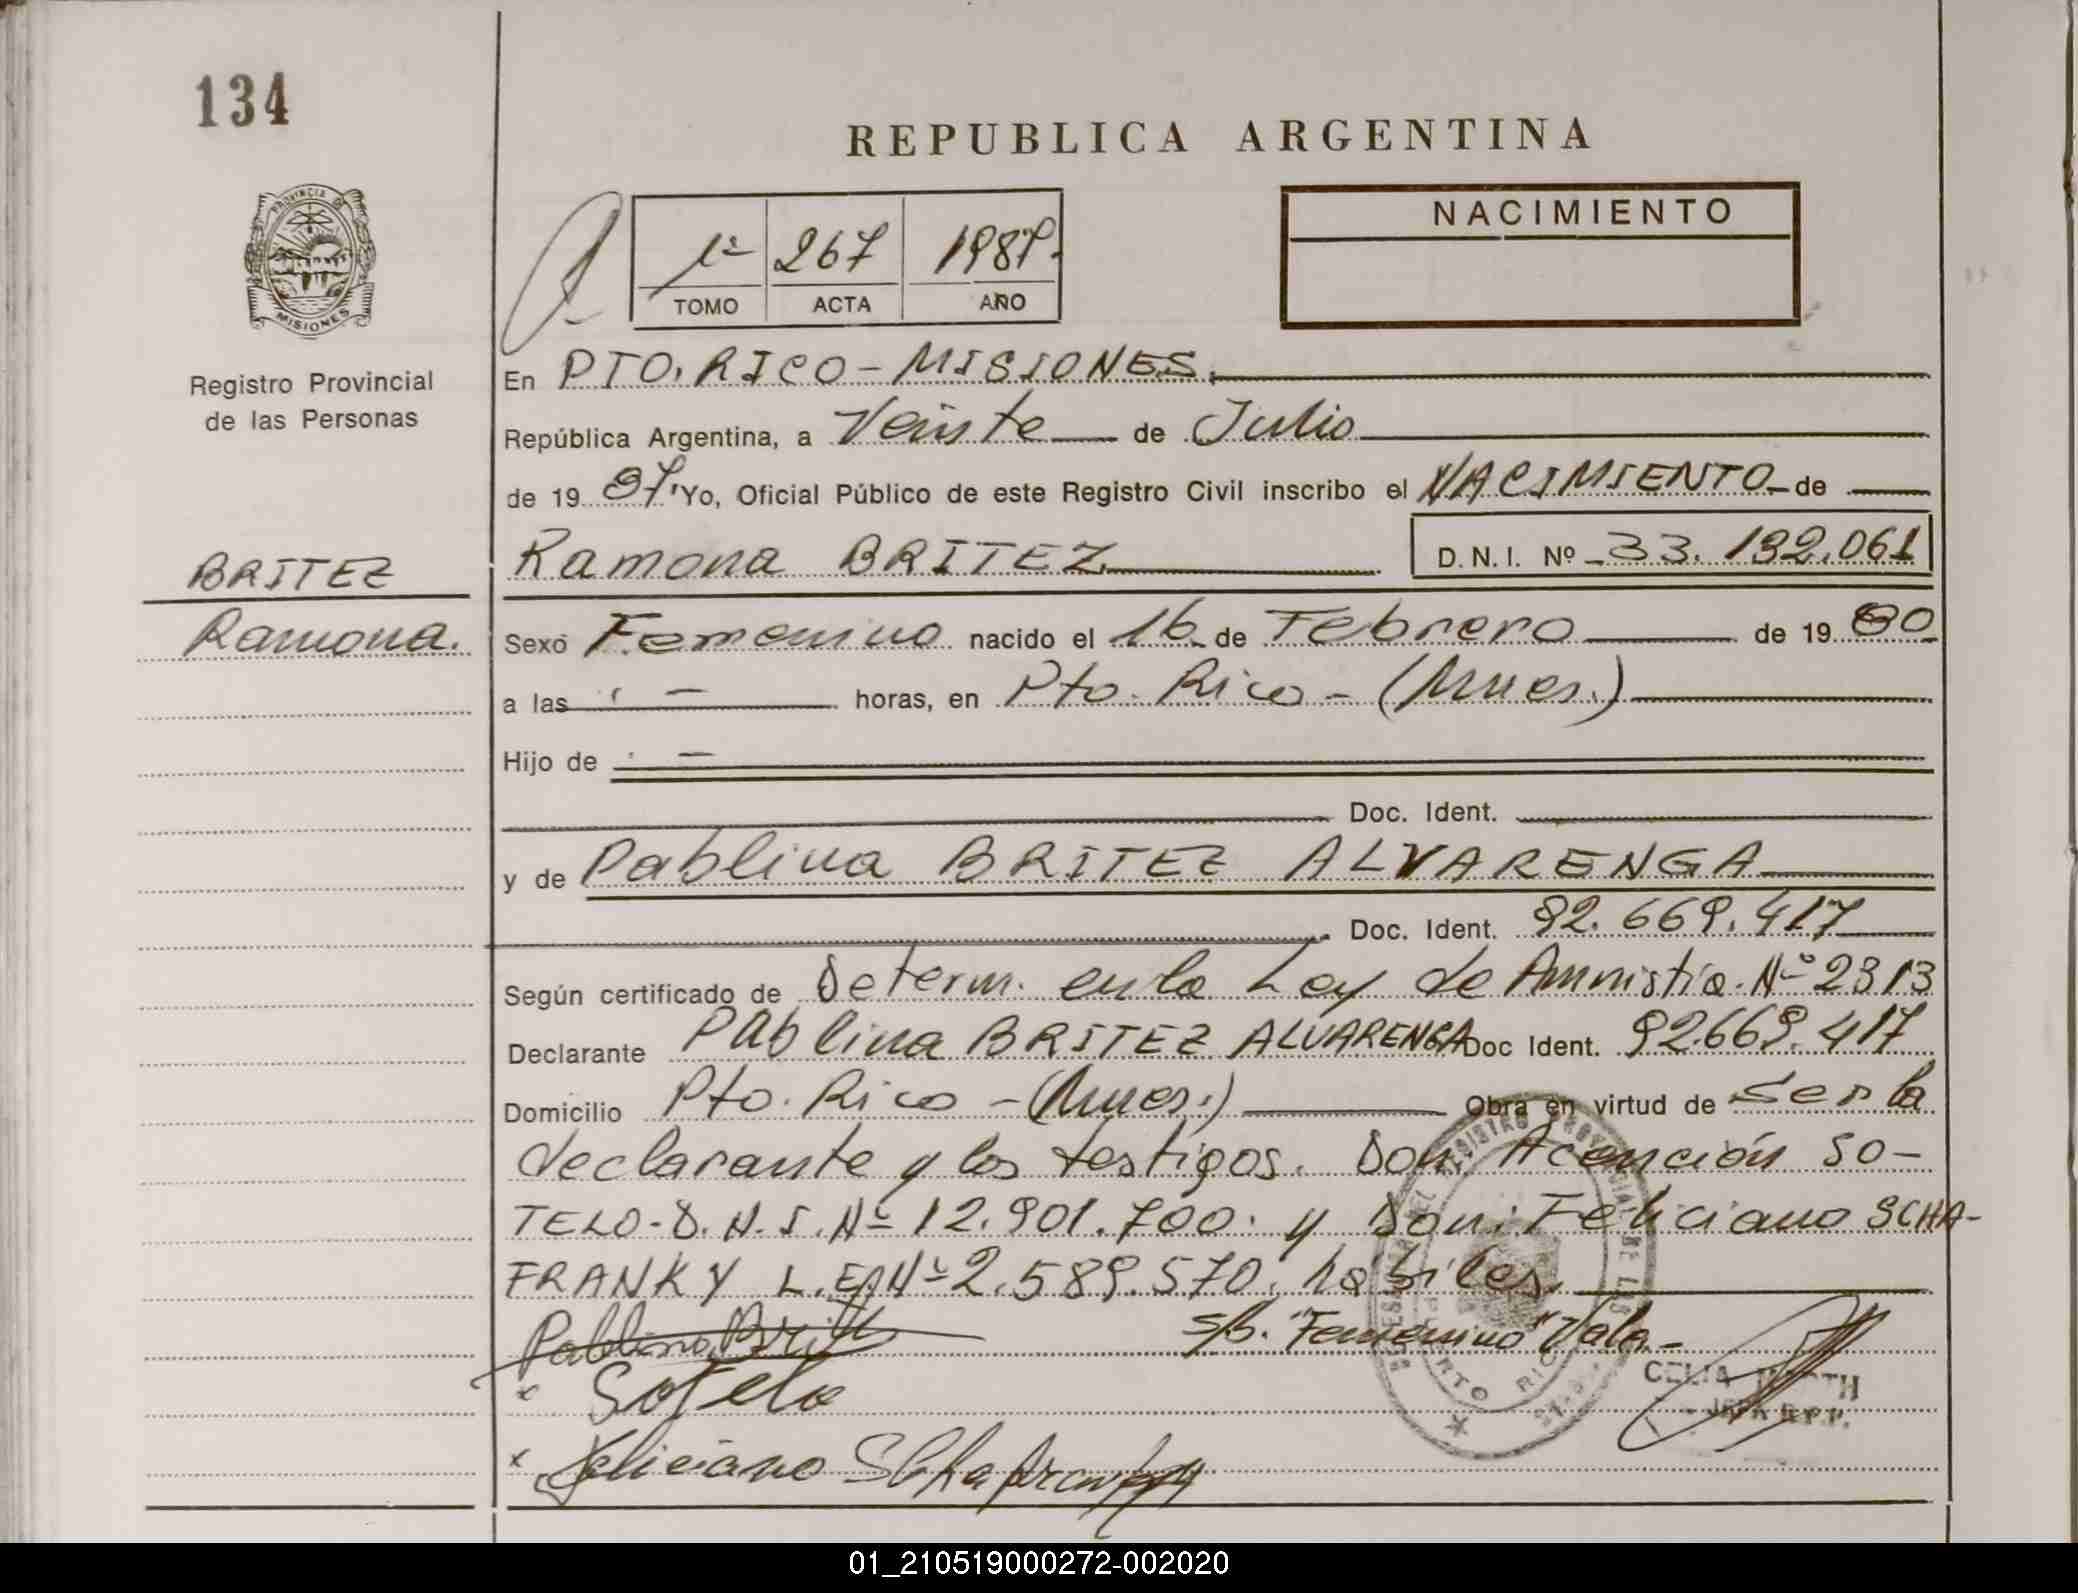 134
REPUBLICA ARGENTINA
PROVINCIA DE
MISIONES
Registro Provincial
de las Personas
1º 267 1987.
TOMO ACTA AÑO
NACIMIENTO
En PTO. RICO - MISIONES.
República Argentina, a Veinte de Julio
de 19 87, Yo, Oficial Público de este Registro Civil inscribo el NACIMIENTO de
BRITEZ
Ramona.
Ramona BRITEZ. D.N.I. Nº 33.132.061
Sexo Femenino nacido el 16 de Febrero de 19 80
a las - horas, en Pto. Rico - (Mnes.)
Hijo de -
Doc. Ident.
y de Pablina BRITEZ ALVARENGA
Doc. Ident. 92.669.417
Según certificado de Determ. en la Ley de Amnistia. Nº 2313
Declarante Pablina BRITEZ ALVARENGA Doc Ident. 92.669.417
Domicilio Pto. Rico - (Mnes.) Obra en virtud de ser la
declarante y los testigos. Don: Acención SO-
TELO - D.N.I. Nº 12.901.700. y Don: Feliciano SCHA-
FRANKY L.E. Nº 2.589.570. habiles.
Pablina Brit s/b. "Femenino" Vale.-
x Sotelo
CELIA
JEFA R.P.P.
x Feliciano Schafranky
PUERTO RICO
01_210519000272-002020